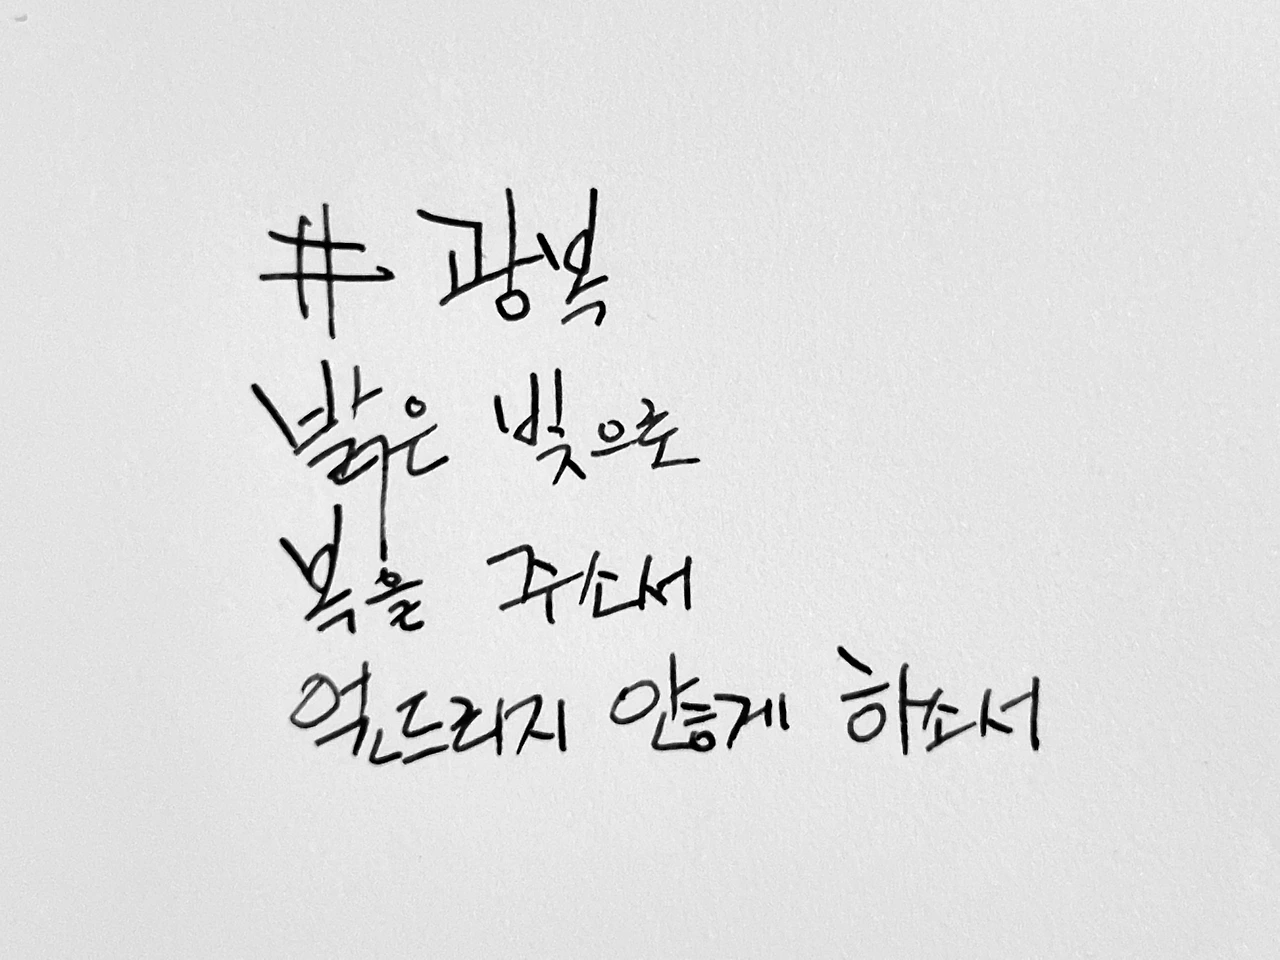 # 광복
밝은 빛으로
복을 주소서
엎드리지 않게 하소서